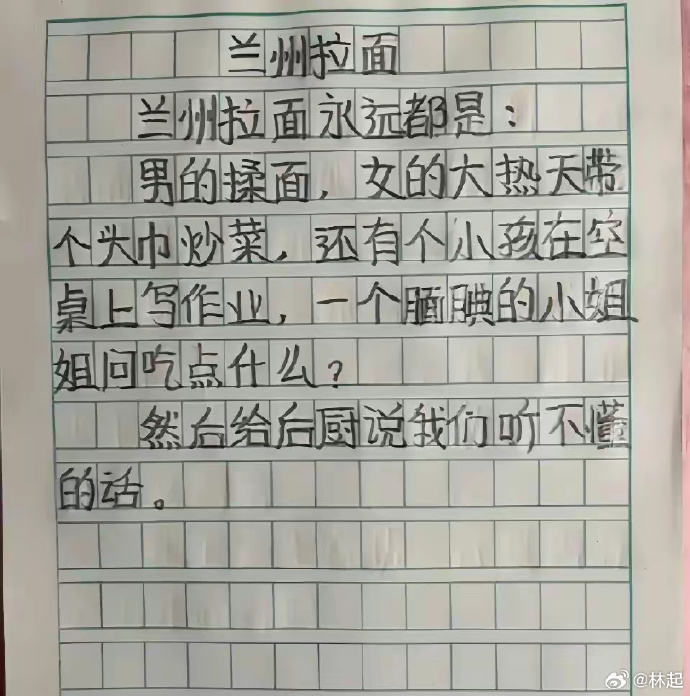 兰州拉面
兰州拉面永远都是：
男的揉面，女的大热天带
个头巾炒菜，还有个小孩在空
桌上写作业，一个腼腆的小姐
姐问吃点什么？
然后给后厨说我们听不懂
的话。
@林起